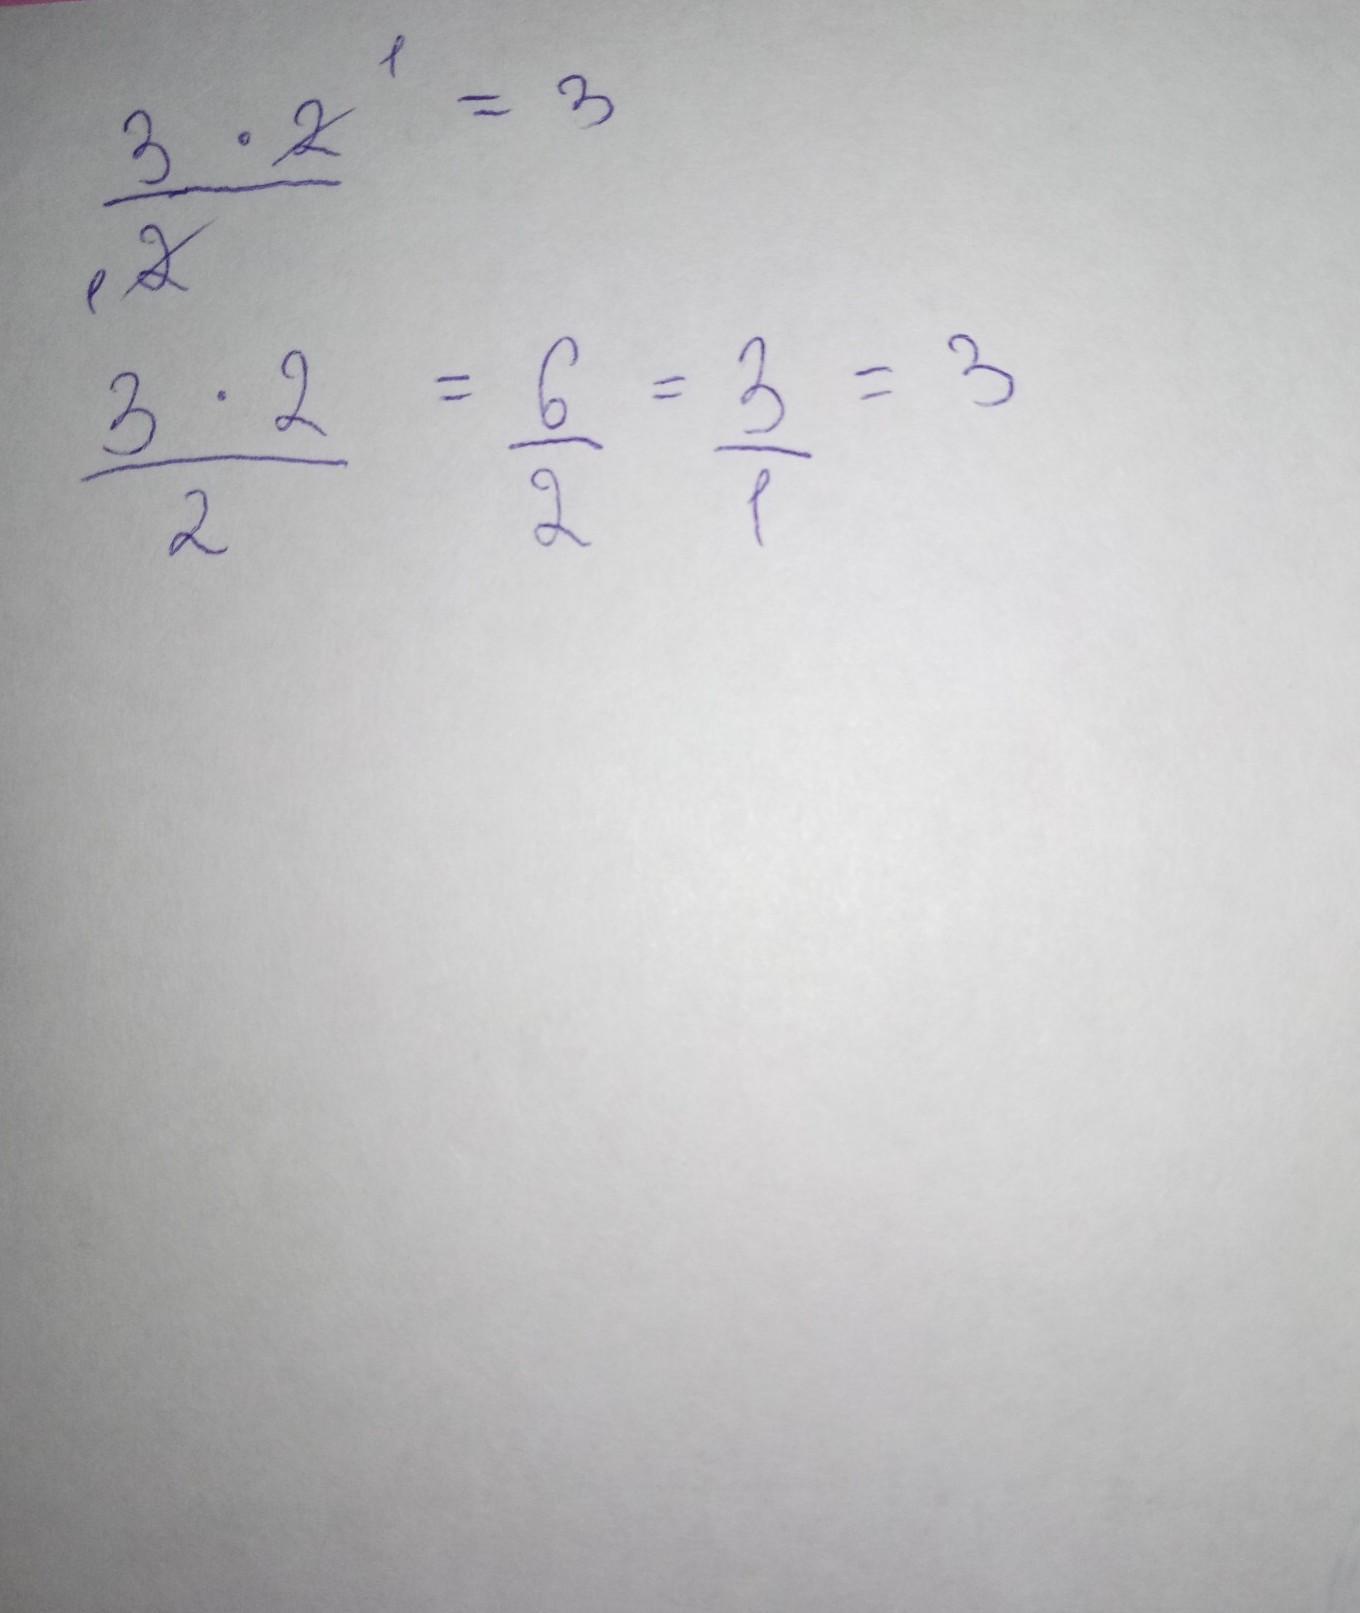 3 · 2 ¹ / ₁ 2 = 3
3 · 2 / 2 = 6 / 2 = 3 / 1 = 3